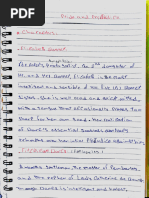 Pride and Prejudice
Characters
Elizabeth Bennet
The novel's protagonist. The 2nd daughter of
Mr. and Mrs. Bennet, Elizabeth is the most
intelligent and sensible of the five Bennet
Sisters. She is well read and quick witted,
with a tongue that occasionally proves too
sharp for her own good. Her realization
of Darcy's essential goodness eventually
triumphs over her initial Prejudice against him.
Fitzwilliam Darcy
A wealthy gentleman, the master of Pemberley,
and the nephew of Lady Catherine de Bourgh.
Though Darcy is intelligent and honest,